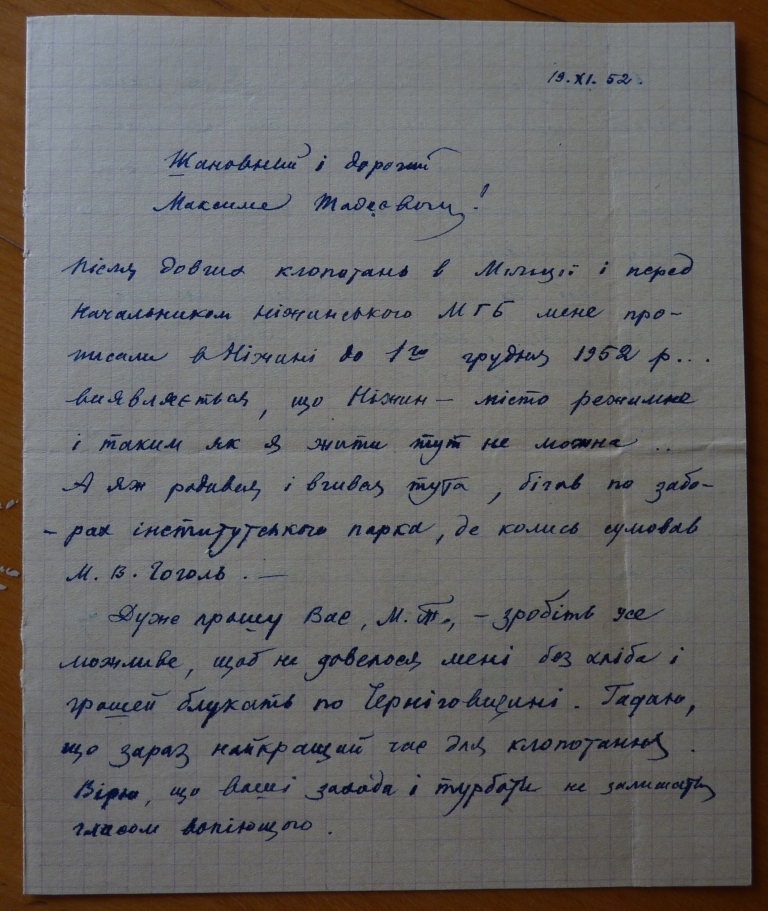 19.XI.52.
Шановний і дорогий
Максиме Тадеєвичу!
Після довгих клопотань в Міліції і перед
Начальником Ніжинського МГБ мене про-
писали в Ніжині до 1го грудня 1952 р...
виявляється, що Ніжин – місто режимне
і таким як я жити тут не можна ..
А я ж родився і вчився тута, бігав по забо-
-рах інститутського парка, де колись сумував
М. В. Гоголь. —
Дуже прошу Вас, М. Т., – зробіть усе
можливе, щоб не довелося мені без хліба і
грошей блукать по Чернігівщині. Гадаю,
що зараз найкращий час для клопотання.
Вірю, що ваші заходи і турботи не залишаться
гласом вопіющого.